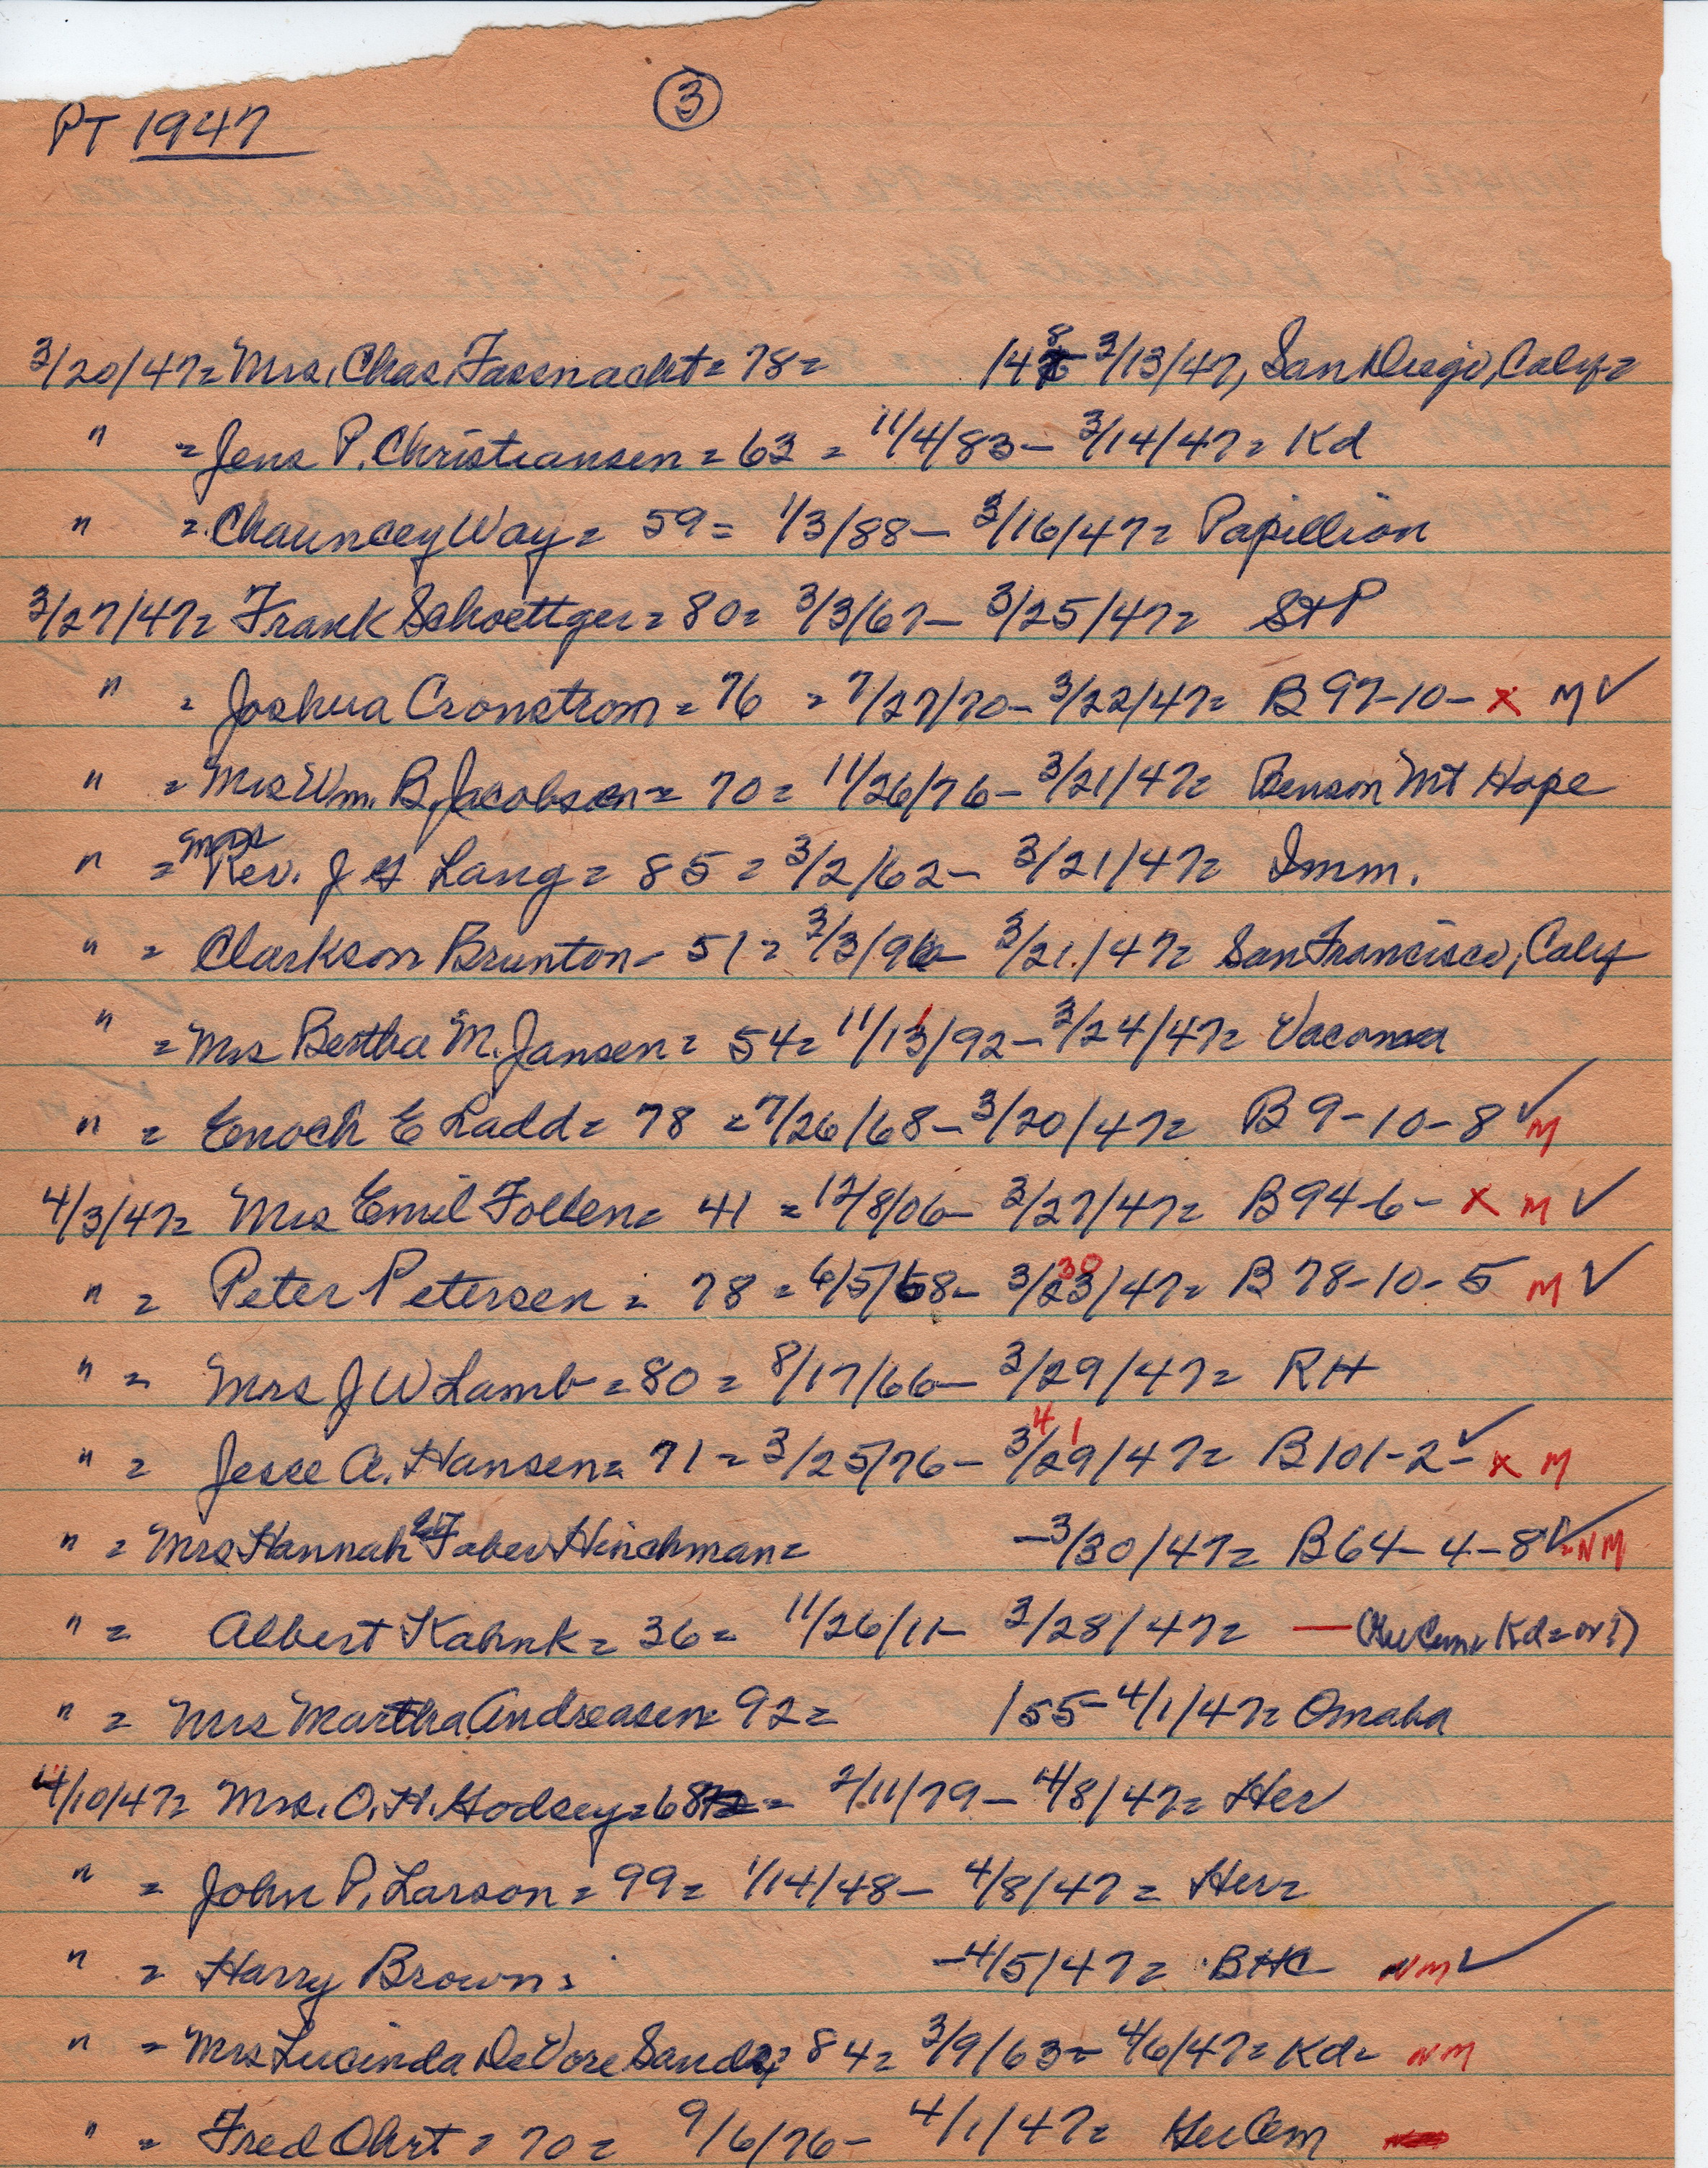 PT 1947
3
3/20/47= Mrs. Chas. Fassnacht= 78= 1 4 8 3/13/47, San Diego, Calif=
" = Jens P. Christiansen = 63 = 11/4/83 - 3/14/47= Kd
" = Chauncey Way = 59 = 1/3/88 - 3/16/47= Papillion
3/27/47= Frank Schoettger = 80= 3/3/67 - 3/25/47= StP
" = Joshua Cronstrom = 76 = 7/27/70 - 3/22/47= B 97-10- x M ✓
" = Mrs Wm. B. Jacobsen = 70 = 11/26/76 - 3/21/47= Benson Mt Hope
" = Mrs Rev. J G Lang = 85 = 3/2/62 - 3/21/47= Imm.
" = Clarkson Brunton - 51 = 3/3/96 - 3/21/47= San Francisco, Calif
" = Mrs Bertha M. Jansen = 54= 11/13/92 - 3/24/47= Vacoma
" = Enoch E Ladd = 78 = 7/26/68 - 3/20/47= B 9-10-8 ✓ M
4/3/47= Mrs Emil Follen= 41 = 12/8/06 - 3/27/47= B 94-6- x M ✓
" = Peter Petersen = 78 = 6/5/68 - 3/23/47= 30 B 78-10-5 M ✓
" = Mrs J W Lamb = 80 = 8/17/66 - 3/29/47= RH
" = Jesse A. Hansen= 71 = 3/25/76 - 3/29/47= 4 1 B 101-2- ✓ x M
" = Mrs Hannah Faber Hinchman= - 3/30/47= B 64-4-8 ✓ - NM
" = Albert Kahnk = 36 = 11/26/11 - 3/28/47= — (Her Cem, Kd= or ?)
" = Mrs Martha Andreasen= 92= 1 55 - 4/1/47= Omaha
4/10/47= Mrs. O. H. Godsey= 68 = 2/11/79 - 4/8/47= Her
" = John P. Larson = 99= 1/14/48 - 4/8/47 = Her=
" = Harry Brown= - 4/5/47= BHC NM ✓
" = Mrs Lucinda DeVore Sandy= 84= 3/9/63 = 4/6/47= Kd= NM
" = Fred Ohrt = 70= 9/6/76 - 4/1/47= Her Cem